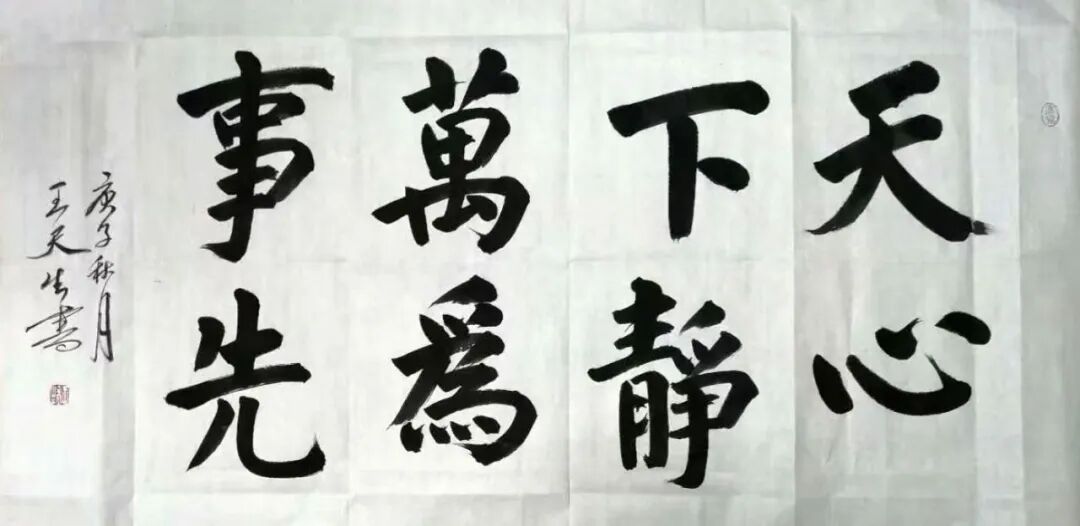 天下萬事
心靜爲先
庚子秋月
王天生書